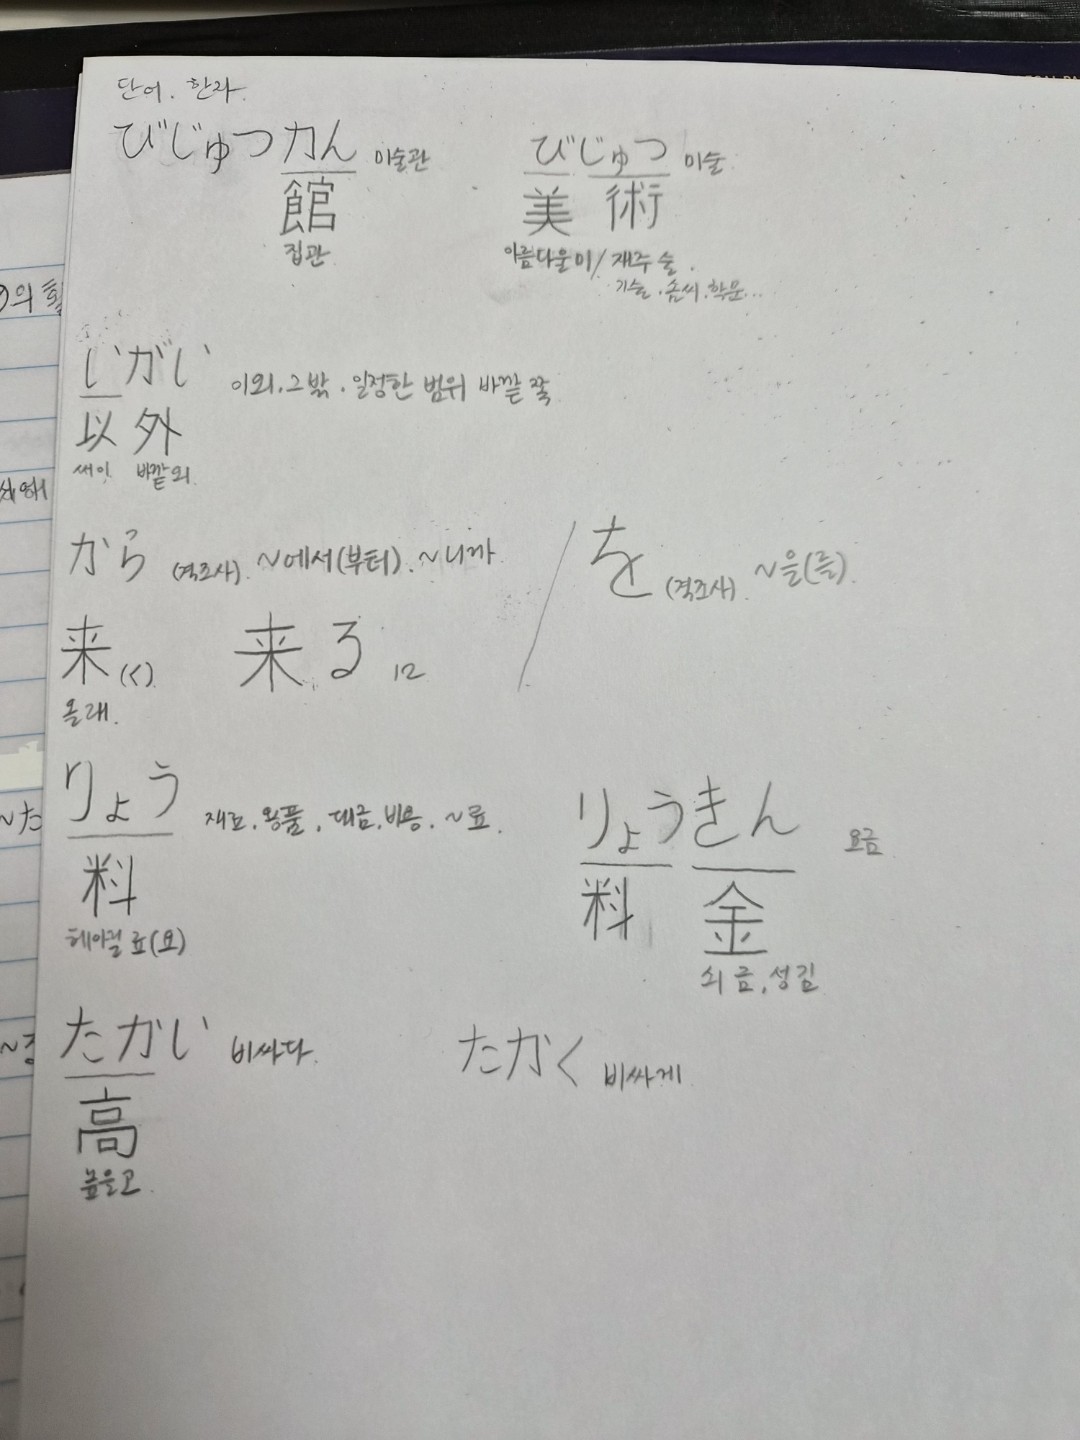 단어. 한자.
びじゅつかん 미술관 びじゅつ 미술
館 美 術
집관 아름다울 미 / 재주 술.
기술. 솜씨. 학문...
いがい 이외. 그 밖. 일정한 범위 바깥 쪽
以 外
써이 바깥외
から (격조사). ~에서(부터). ~니까 / を (격조사). ~을(를).
来(く) 来る
올래.
りょう 재료. 용품, 대금, 비용. ~료. りょうきん 요금
料 料 金
헤아릴 료(요) 쇠 금, 성김
たかい 비싸다. たかく 비싸게
高
높을고.
の의
~た